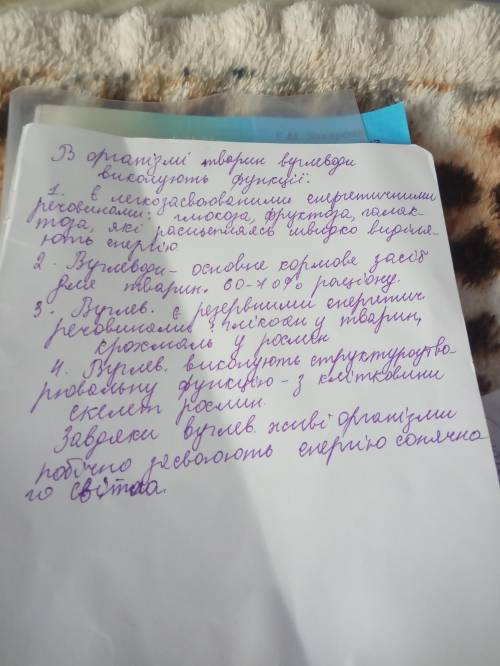 В організмі тварин вуглеводи
виконують функції:
1. Є легкозасвоюваними енергетичними
речовинами: глюкоза, фруктоза, галак-
тоза, які расщепляясь швидко виділя-
ють енергію
2. Вуглеводи - основне кормове засіб
для тварин. 60-70% раціону.
3. Вуглев. є резервними енергитич.
речовинами: глікоген у тварин,
крохмаль у рослин
4. Вуглев. виконують структуроутво-
рювальну функцію - з клітковини
скелет рослин.
Завдяки вуглев. живі організми
побічно засвоюють енергію сонячно
го світла.